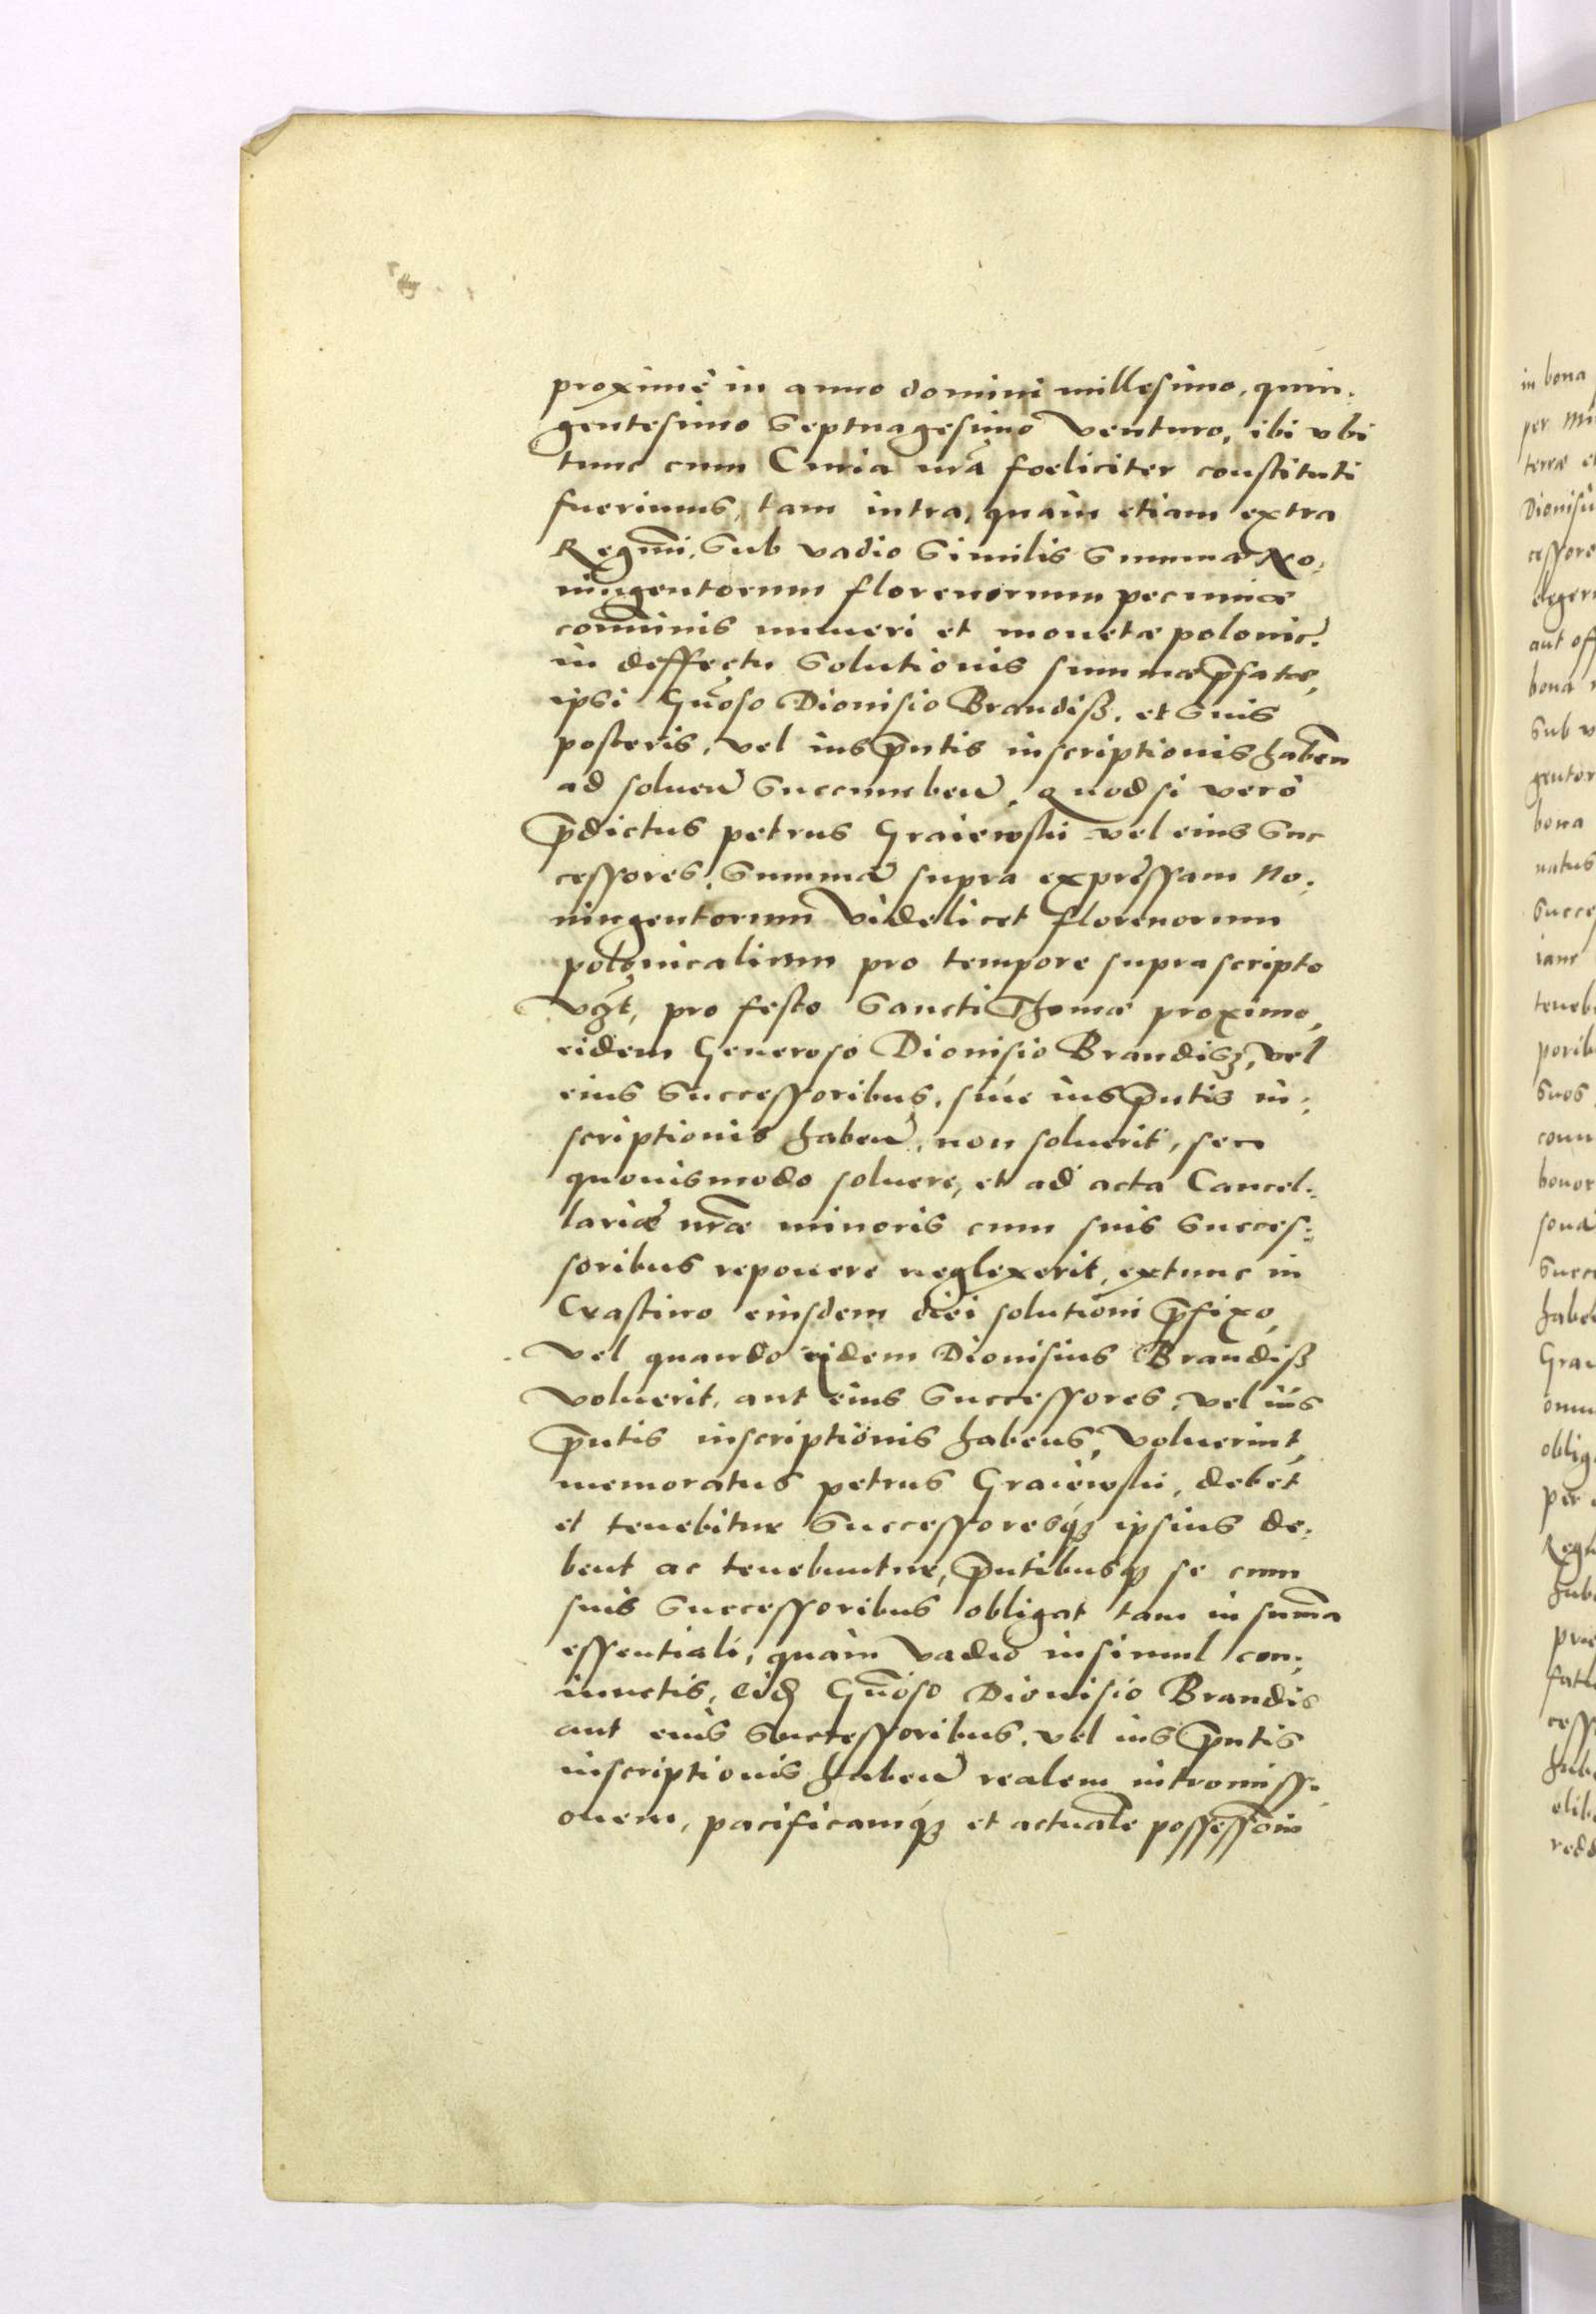 proximè in anno domini millesimo, quin-
gentesimo Septuagesimo Venturo, ibi vbi
tunc cum Curia nr̃a foeliciter constituti
fuerimus, tam intra, quàm etiam extra
Regnũ, Sub vadio Similis Summæ No,
ningentorum florenorum pecuniæ
com̃unis numeri et monetæ polonic̃,
in deffectu Solutionis summæ p̃fatæ,
ipsi Gñoso Dionisio Brandiß, et Suis
posteris, vel ius p̃ntis inscriptionis habeñ
ad soluenđ Succumbenđ, Quod si verò
p̃dictus petrus Graiewski vel eius Suc
cessores, Summã supra expressam No,
ningentorum Videlicet florenorum
polonicalium pro tempore suprascripto
Vꝫt, pro festo Sancti Thomæ proximo,
eidem Generoso Dionisio Brandisz, vel
eius Successoribus, siue ius p̃ntis in-
scriptionis habenđ, non soluerit, seu
quouismodo soluere, et ad acta Cancel-
lariæ nr̃æ minoris cum suis Succes-
soribus reponere neglexerit, extunc in
Crastino eiusdem diei solutioni p̃fixo,
Vel quando eidem Dionisius Brandiß
Voluerit, aut eius Successores, vel ius
p̃ntis inscriptionis habens, Voluerint,
memoratus petrus Graiewski, debet
et tenebitur Successoresqꝫ ipsius de-
bent ac tenebuntur, p̃ntibusqꝫ se cum
suis Successoribus obligat tam in sum̃a
essentiali, quàm Vadio insimul con-
iunctis, eidꝫ Gñoso Dionisio Brandis
aut eius Successoribus, vel ius p̃ntis
inscriptionis habenđ realem intromissi-
onem, pacificamqꝫ et actualẽ possessionẽ